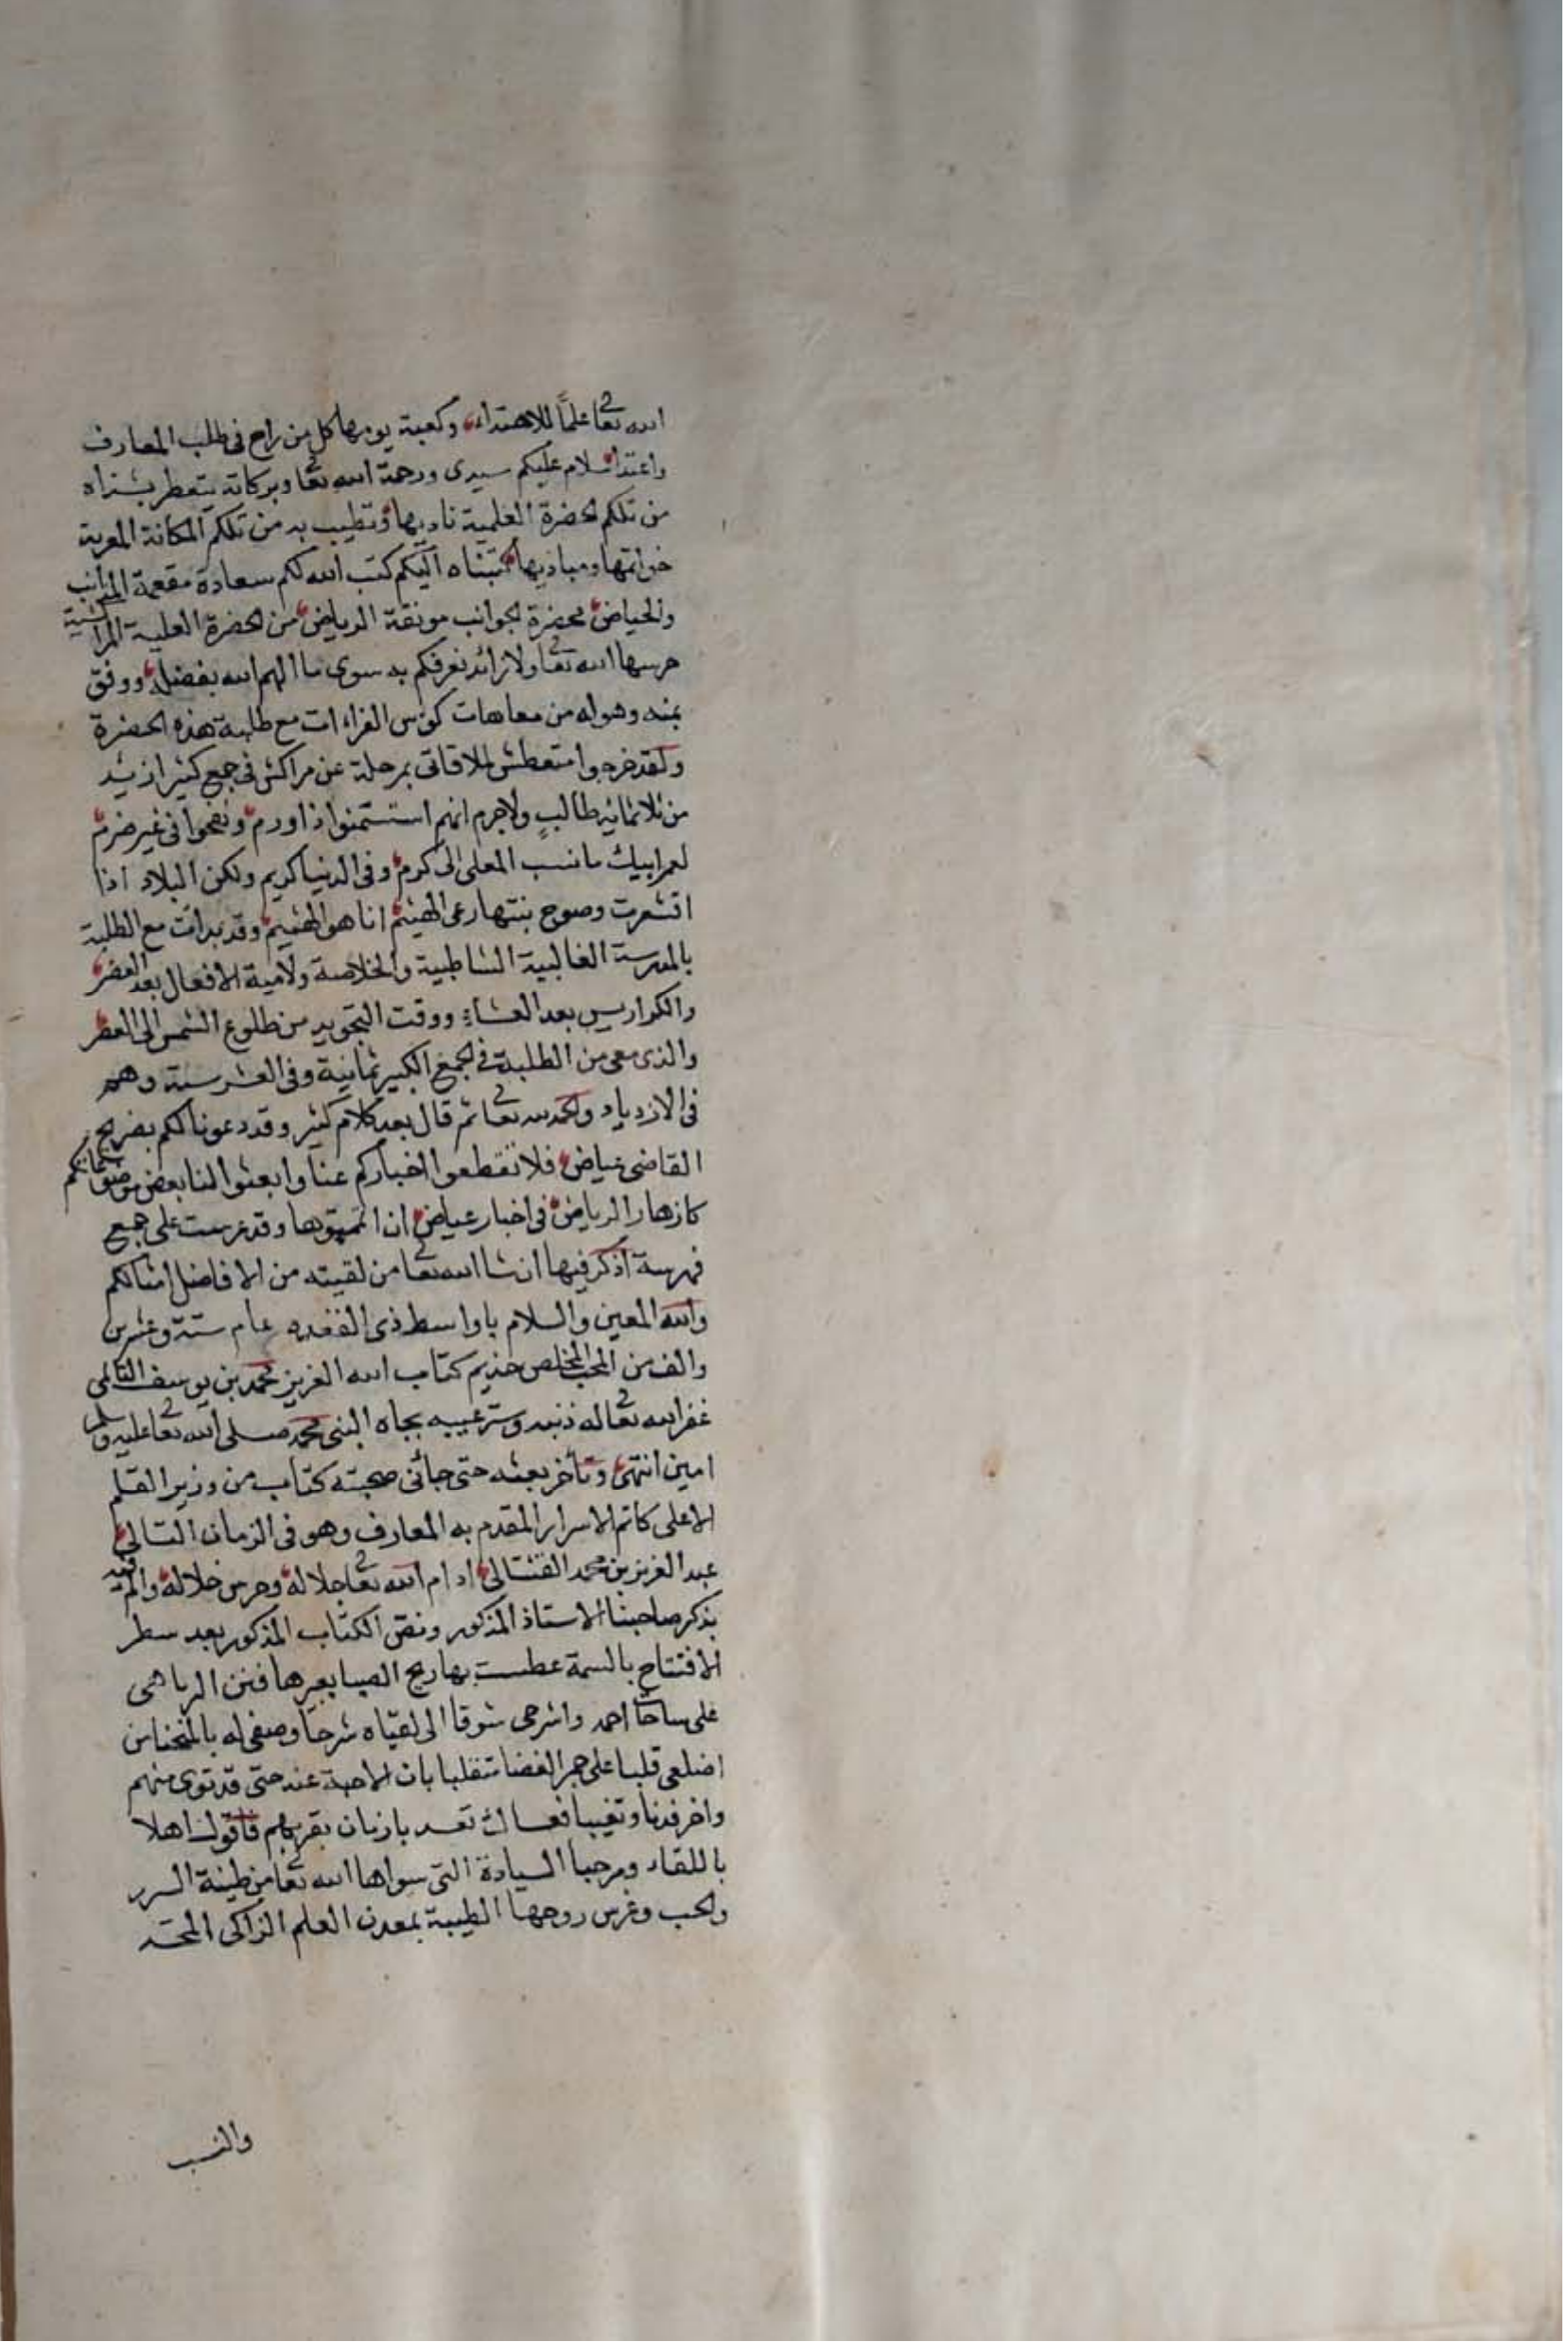 الله تعالى علما للاهتداء وكعبة يومها كل من راح في طلب المعارف
واغتدا سلام عليكم سيدي ورحمة الله تعالى وبركاته يتعطر بشذاه
من تلكم الحضرة العلمية ناديها وتطيب به من تلكم المكانة المعربة
خواتمها ومباديها كتبناه اليكم كتب الله لكم سعادة مفعمة المذانب
والحياض مخضرة الجوانب مونقة الرياض من الحضرة العلية المراكشية
حرسها الله تعالى ولا زائد نعرفكم به سوى ما الهم الله بفضله ووفق
بمنه وهوله من معاهات كؤس القراءات مع طلبة هذه الحضرة
ولقد خرجوا متعطش لملاقاتي بمرحلة عن مراكش في جمع كثير ازيد
من ثلاثمائية طالب ولا جرم انهم استسمنوا ذا ورم ونفخوا في غير ضرم
لعمر ابيك ما نسب المعلى الى كرم وفي الدنيا كريم ولكن البلاد اذا
اقشعرت وصوح بنتها رعى الهشيم انا هو الهشيم وقد بدات مع الطلبة
بالمدرسة الغالبية الشاطبية والخلاصة ولامية الافعال بعد العصر
والكراريس بعد العشاء ووقت التجويد من طلوع الشمس الى العصر
والذي معي من الطلبة في الجمع الكبير ثمانية وفي العشر ستة وهم
في الازدياد والحمد لله تعالى ثم قال بعد كلام كثير وقد دعونا لكم بضريح
القاضي عياض فلا تقطعوا اخباركم عنا وابعثوا لنا بعض موضوعاتكم
كازهار الرياض في اخبار عياض ان اتممتوها وقد عزمت على جمع
فهرسة اذكر فيها ان شا الله تعالى من لقيته من الافاضل امثالكم
والله المعين والسلام باواسط ذي القعده عام ستة وعشرين
والف من المحب المخلص خديم كتاب الله العزيز محمد بن يوسف التاملي
غفر الله تعالى له ذنبه وستر عيبه بجاه النبي محمد صلى الله تعالى عليه وسلم
امين انتهى وتأخر بعثه حتى جائني صحبته كتاب من وزير القلم
الاعلى كاتم الاسرار المقدم به المعارف وهو في الزمان التالي
عبد العزيز بن محمد الفشتالي ادام الله تعالى جلاله وحرس خلاله والم فيه
بذكر صاحبنا الاستاذ المذكور ونص الكتاب المذكور بعد سطر
الافتتاح بالسمة عطست بها ريح الصبا بعبرها فنن الربا هي
على ساحتا احمد واشرحي شوقا الى لقياه شرحا وصفي له بالمنحنا من
اضلعي قلبا على جمر الغضا متقلبا بان الاحبة عنه حتى قد توى منهم
واخر قدنا وتغيبا فعساك تسعد يا زمان بقربهم فاقول اهلا
باللقاء ومرحبا السيادة التي سواها الله تعالى من طينة السرر
والحب وغرس روحها الطيبة بمعدن العلم الزاكي المحتد
والنسب